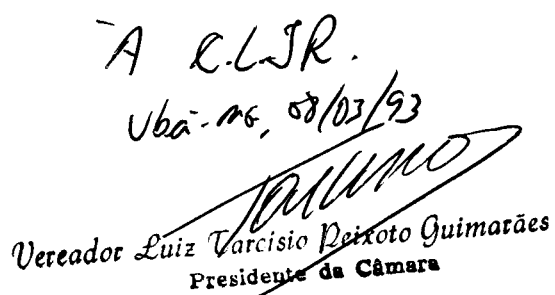 À C.L.J.R.
Ubá-MG, 08/03/93
Vereador Luiz Tarcísio Peixoto Guimarães
Presidente da Câmara